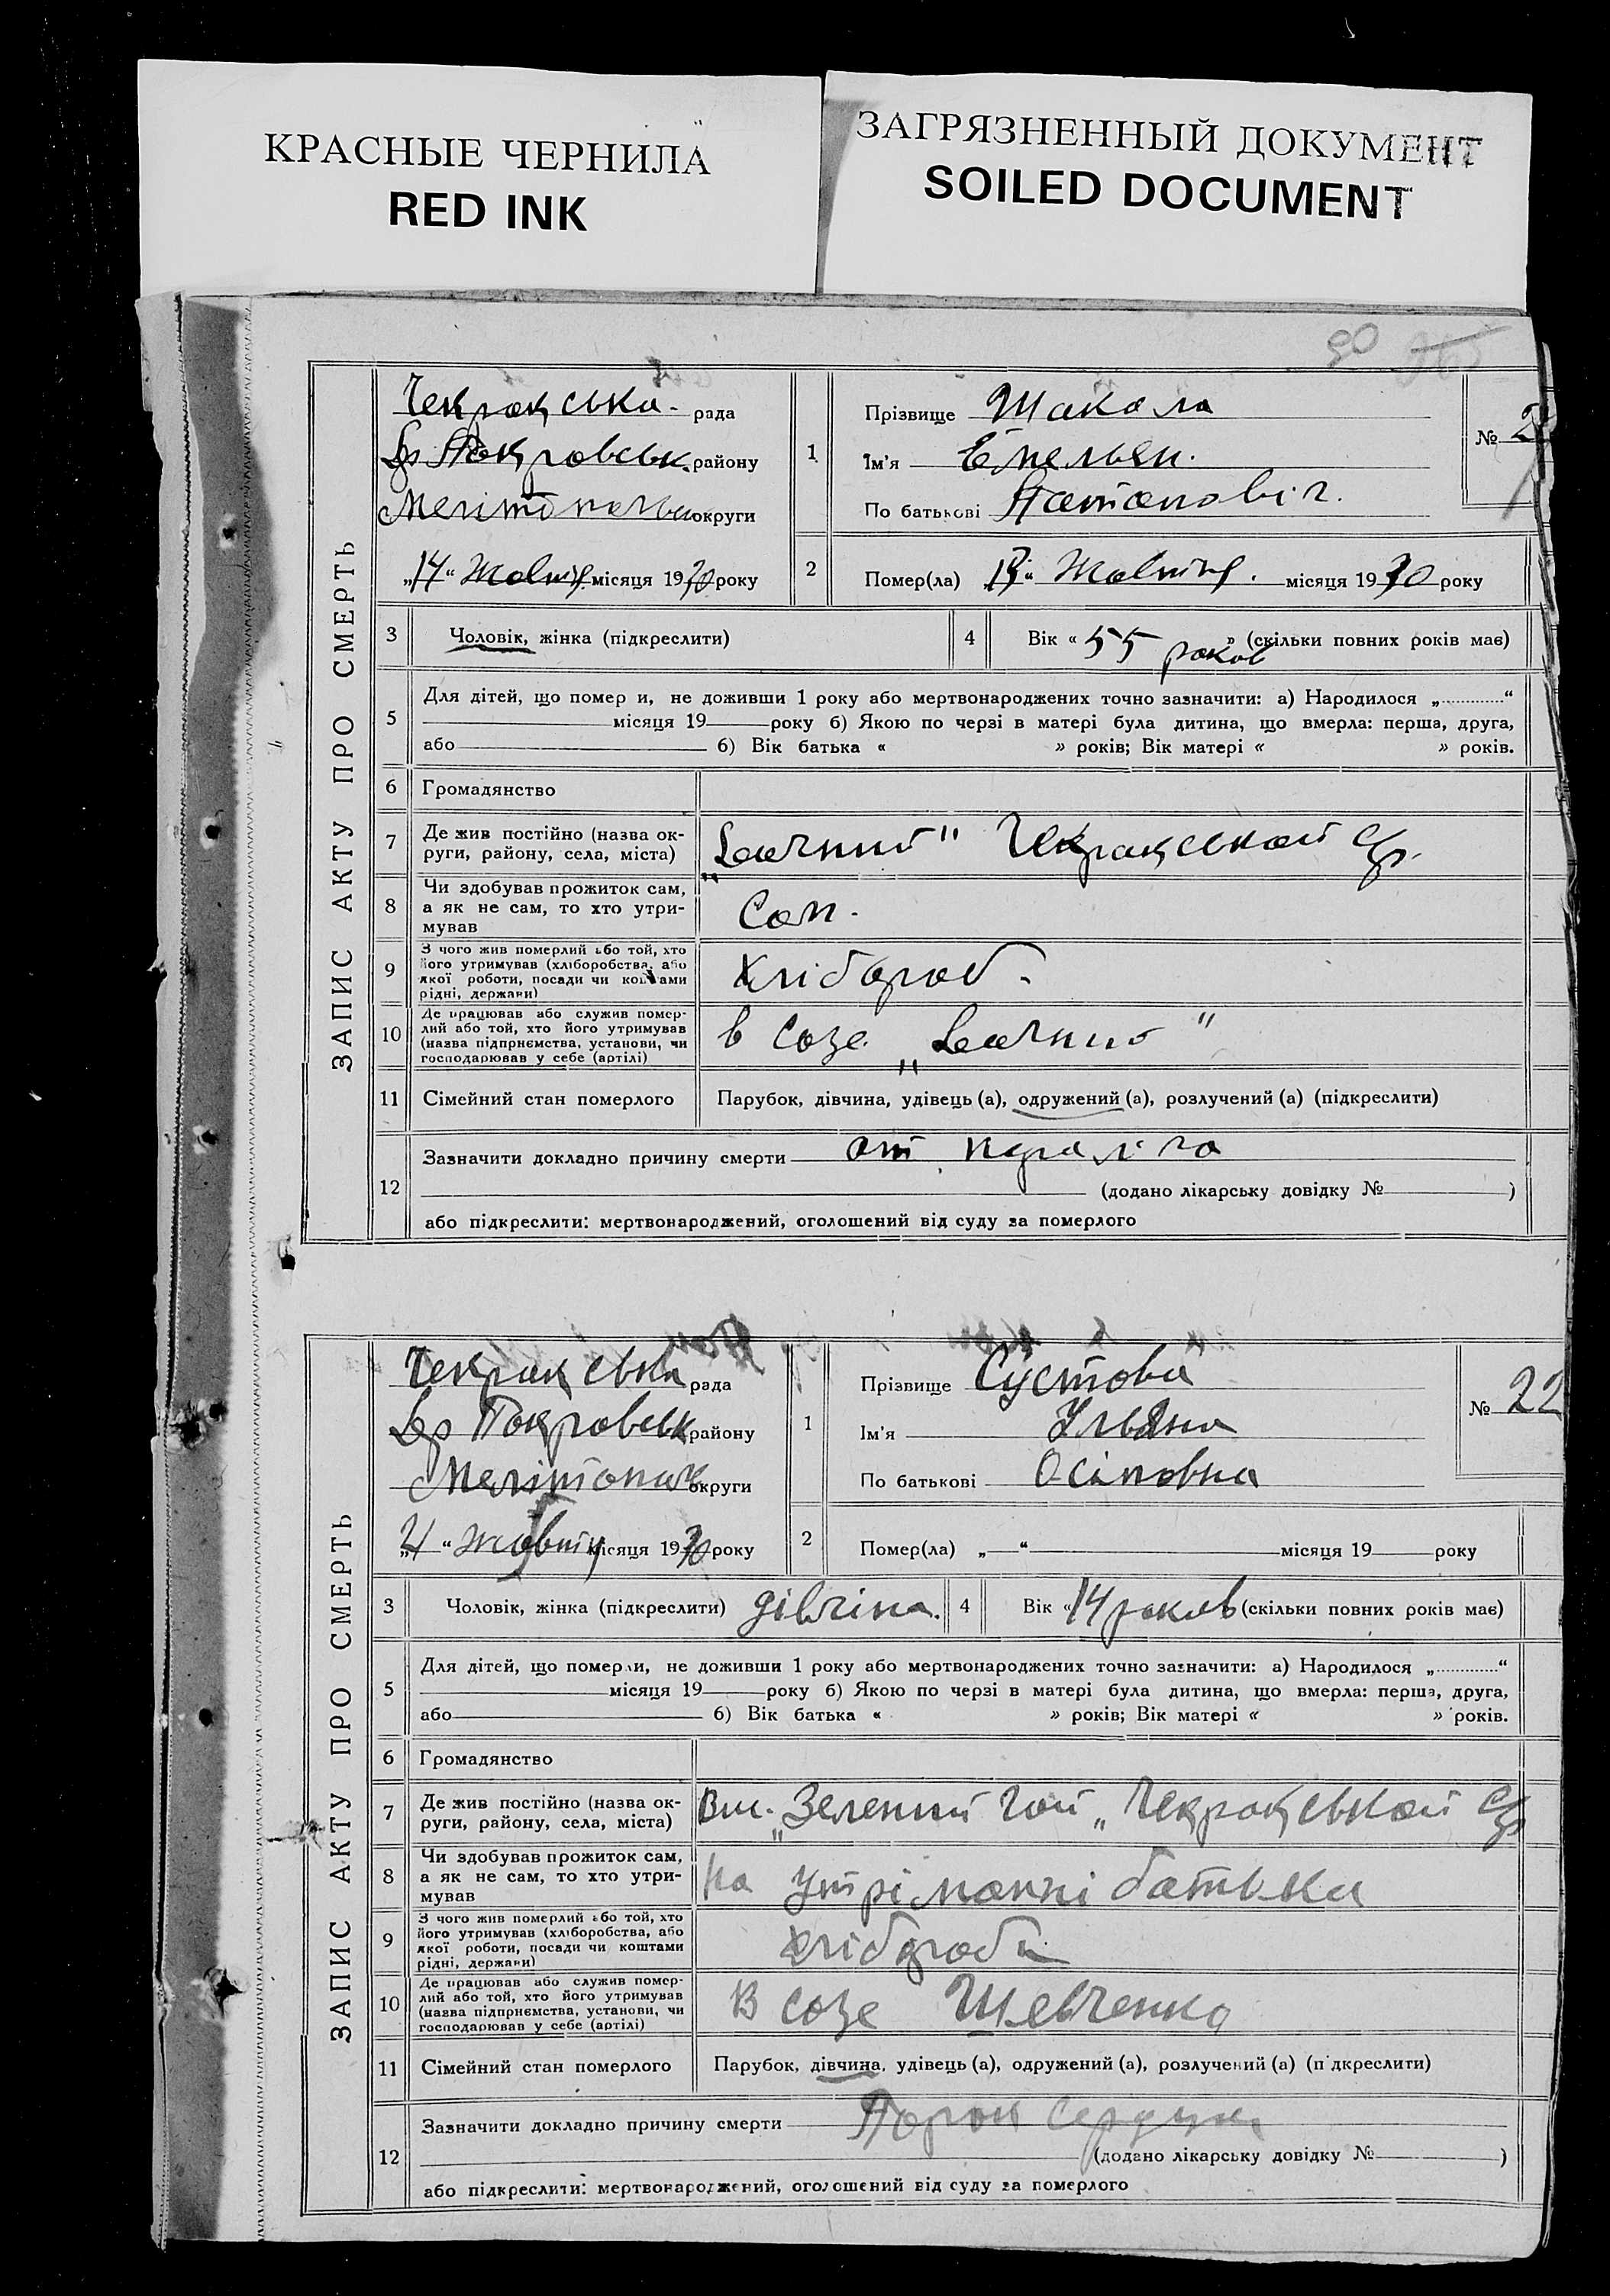 КРАСНЫЕ ЧЕРНИЛА
RED INK
ЗАГРЯЗНЕННЫЙ ДОКУМЕНТ
SOILED DOCUMENT
90
ЗАПИС АКТУ ПРО СМЕРТЬ
Чекракська рада
Покровськ. району
округи
„14“ Жовтня місяця 1930 року
1
Прізвище Шакала
Ім'я Емельян.
По батькові
№ 2
2
Помер(ла) „13“ Жовтня. місяця 1930 року
3 Чоловік, жінка (підкреслити)
4 Вік « 55 роков » (скільки повних років має)
5 Для дітей, що помер и, не доживши 1 року або мертвонароджених точно зазначити: а) Народилося „ “
місяця 19 року б) Якою по черзі в матері була дитина, що вмерла: перша, друга,
або б) Вік батька « » років; Вік матері « » років.
6 Громадянство
7 Де жив постійно (назва округи, району, села, міста) Чекракської с/р.
8 Чи здобував прожиток сам, а як не сам, то хто утримував Сам.
9 З чого жив померлий або той, хто його утримував (хліборобства, або якої роботи, посади чи коштами рідні, держави) Хлібороб.
10 Де працював або служив померлий або той, хто його утримував (назва підприємства, установи, чи господарював у себе (артілі) в Созе
11 Сімейний стан померлого Парубок, дівчина, удівець (а), одружений (а), розлучений (а) (підкреслити)
12 Зазначити докладно причину смерти от
(додано лікарську довідку № )
або підкреслити: мертвонароджений, оголошений від суду за померлого
ЗАПИС АКТУ ПРО СМЕРТЬ
Чекракська рада
Покровськ району
округи
„21“ Жовтня місяця 1930 року
1
Прізвище Сустова
Ім'я Ульяна
По батькові Осіповна
№ 22
2
Помер(ла) „ “ місяця 19 року
3 Чоловік, жінка (підкреслити) дівчіна.
4 Вік « 14 роков (скільки повних років має)
5 Для дітей, що померли, не доживши 1 року або мертвонароджених точно зазначити: а) Народилося „ “
місяця 19 року б) Якою по черзі в матері була дитина, що вмерла: перша, друга,
або б) Вік батька « » років; Вік матері « » років.
6 Громадянство
7 Де жив постійно (назва округи, району, села, міста) Вис. „Зелений Гай„ Чекракської с/р
8 Чи здобував прожиток сам, а як не сам, то хто утримував На утріманні батька
9 З чого жив померлий або той, хто його утримував (хліборобства, або якої роботи, посади чи коштами рідні, держави) хлібороба
10 Де працював або служив померлий або той, хто його утримував (назва підприємства, установи, чи господарював у себе (артілі) В созе Шевченка
11 Сімейний стан померлого Парубок, дівчина, удівець (а), одружений (а), розлучений (а) (підкреслити)
12 Зазначити докладно причину смерти Порок Сердца
(додано лікарську довідку № )
або підкреслити: мертвонароджений, оголошений від суду за померлого